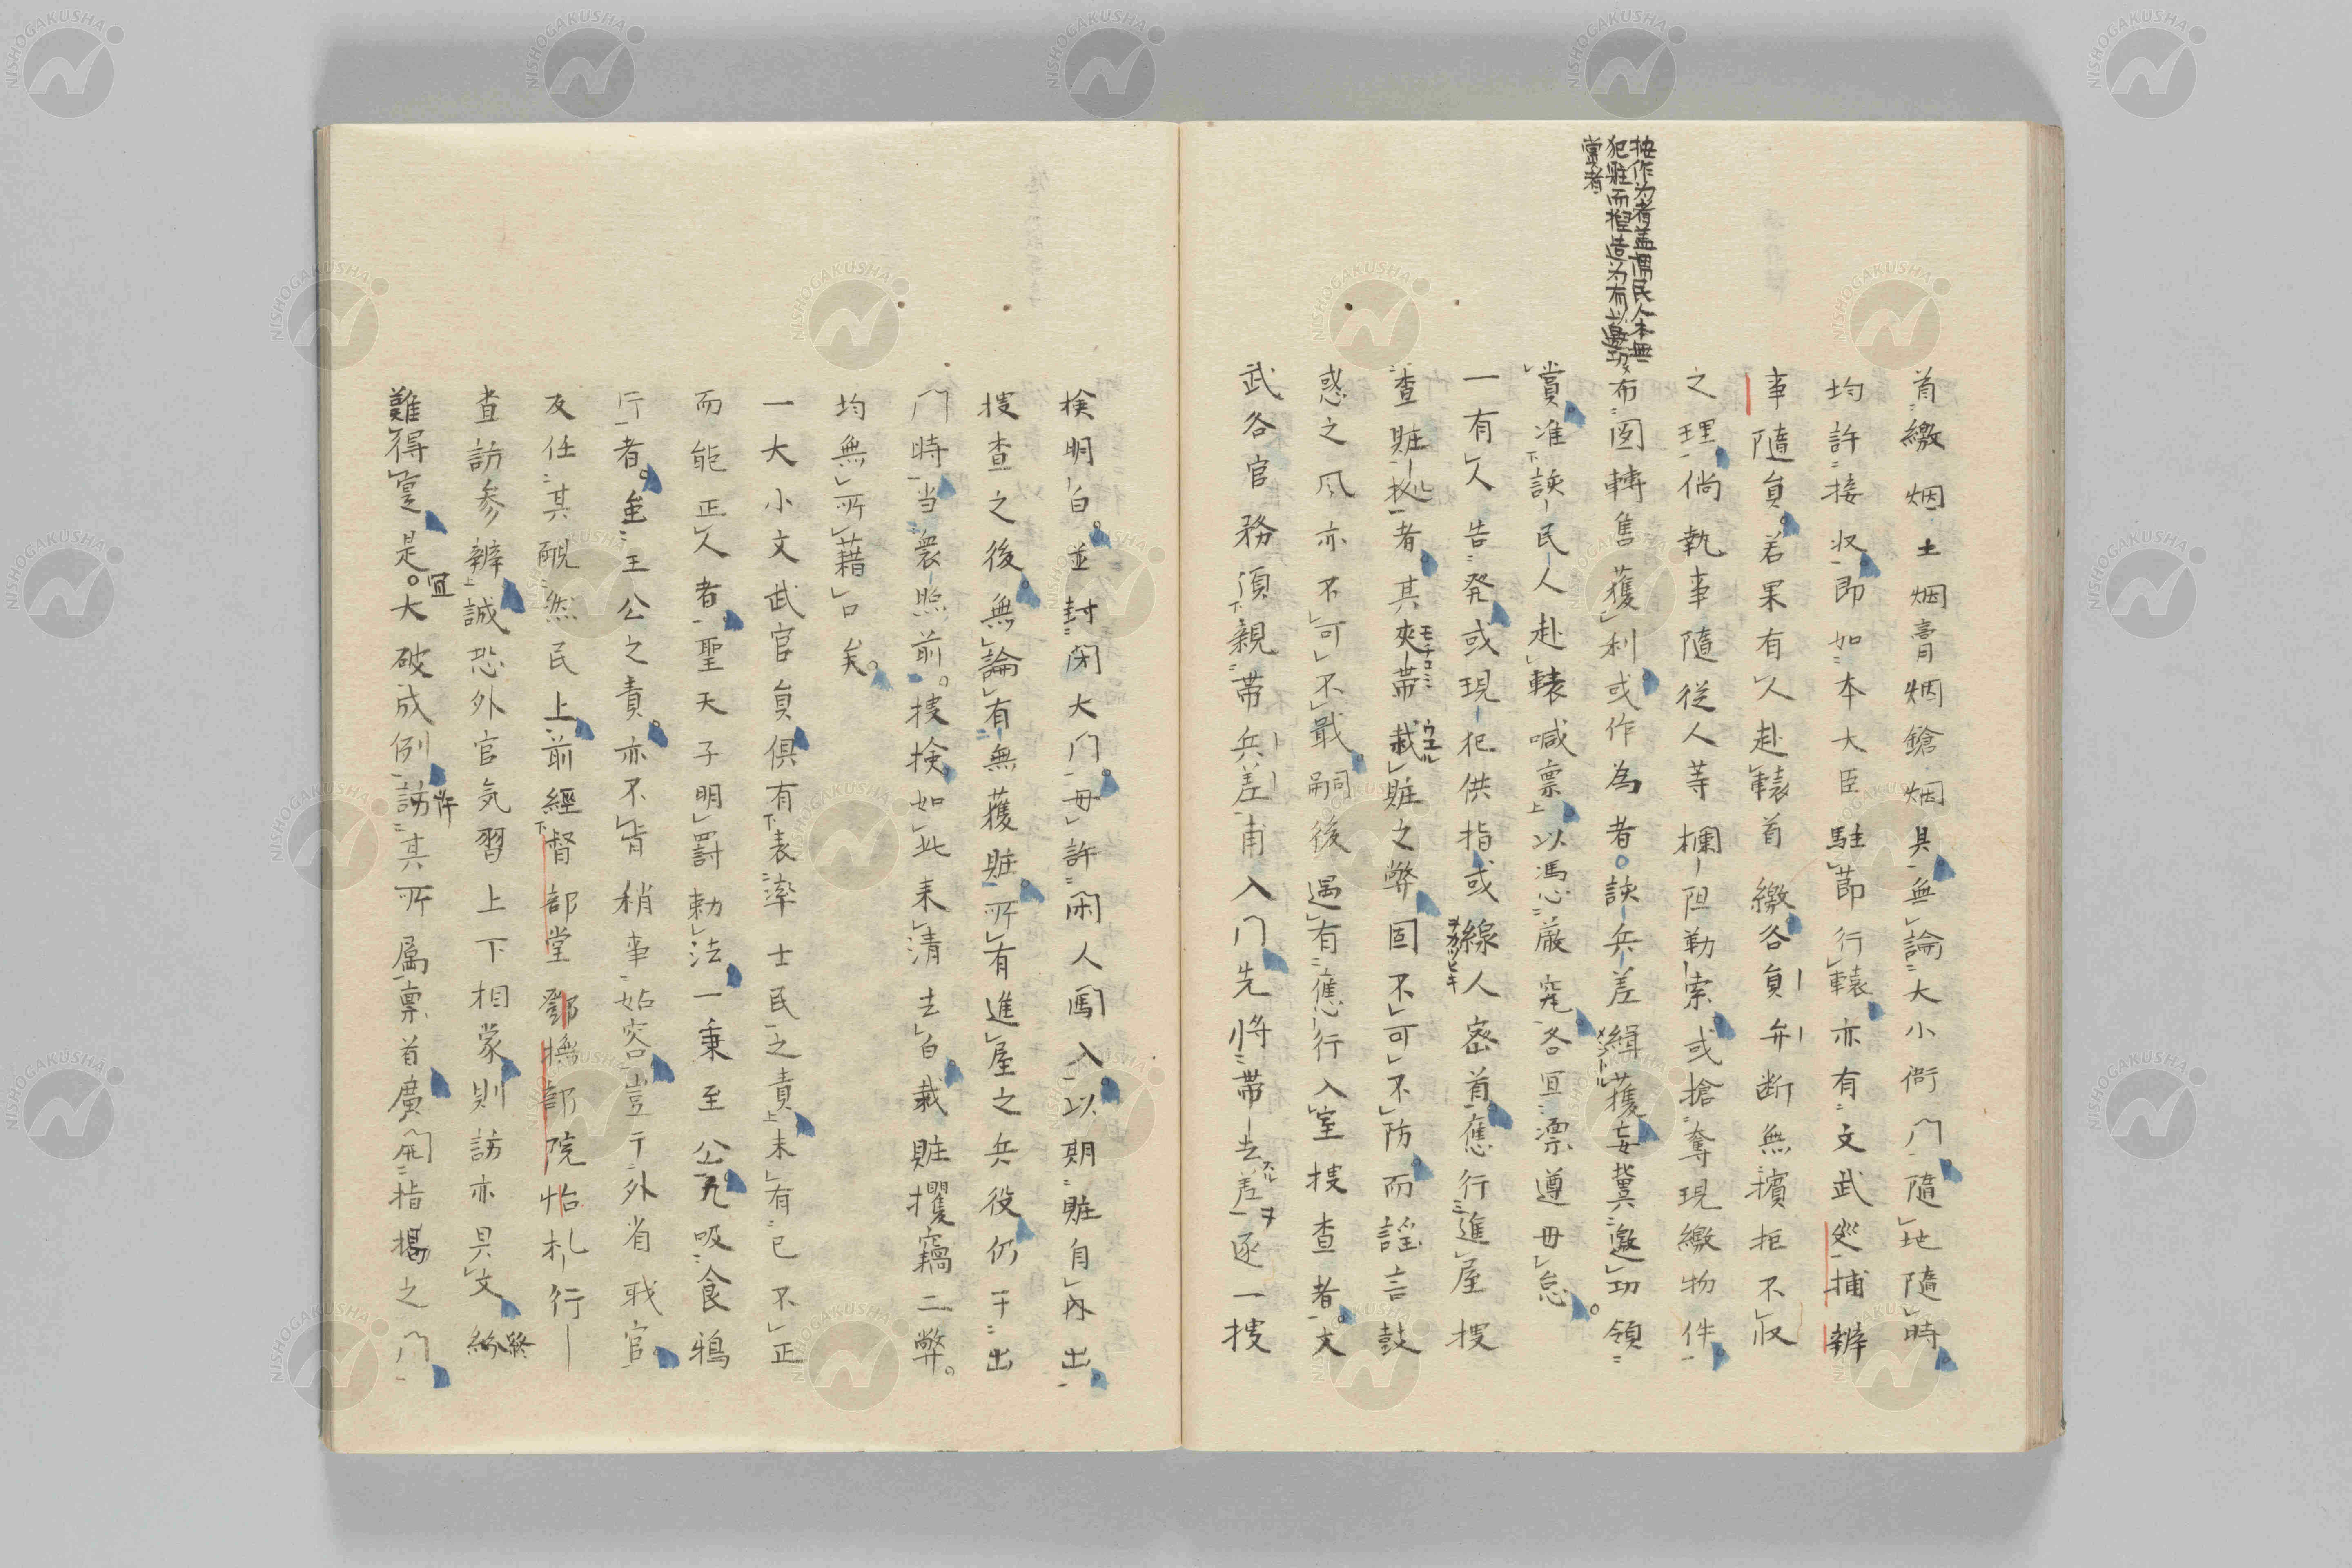 按作为者盖謂民人本無
犯賍而揑造为有以邀功
賞者
首繳烟土烟膏烟鎗烟具無論大小衙门隨地隨時
均許接収即如本大臣駐節行轅亦有文武巡捕辨
事隨員若果有人赴轅首繳各員弁断無擯拒不収
之理倘執事隨從人等欄阻勒索或搶奪現繳物件
布图轉售獲利或作為者該兵差緝獲妄冀邀功領
賞准該民人赴轅喊禀以馮心厳究各宜凛遵毋怠
一有人告発或現犯供指或線人密首應行進屋搜
查賍拠者其夾帯栽賍之弊固不可不防而謡言鼓
惑之风亦不可不戢嗣後遇有應行入室搜查者文
武各官務須親帯兵差甫入门先將帯去差逐一搜
検明白並封闭大门毋許闲人闖入以期賍自内出
搜查之後無論有無獲賍所有進屋之兵役仍于出
门時当衆照前搜検如此来清去白栽賍攫竊二弊
均無所藉口矣
一大小文武官員俱有表率士民之責未有己不正
而能正人者聖天子明罰勅法一秉至公凢吸食鴉
片者至王公之責亦不肯稍事姑容豈于外省戕官
友任其靦然民上前經督部堂鄧撫部院怡札行
查訪参辨誠恐外官気習上下相蒙則訪亦具文終
難得寔是大破成例訪其所属禀首廣開指揭之门
モチコミ
ウエル
ヲカツヒキ
宜
許
終
NISHOGAKUSHA